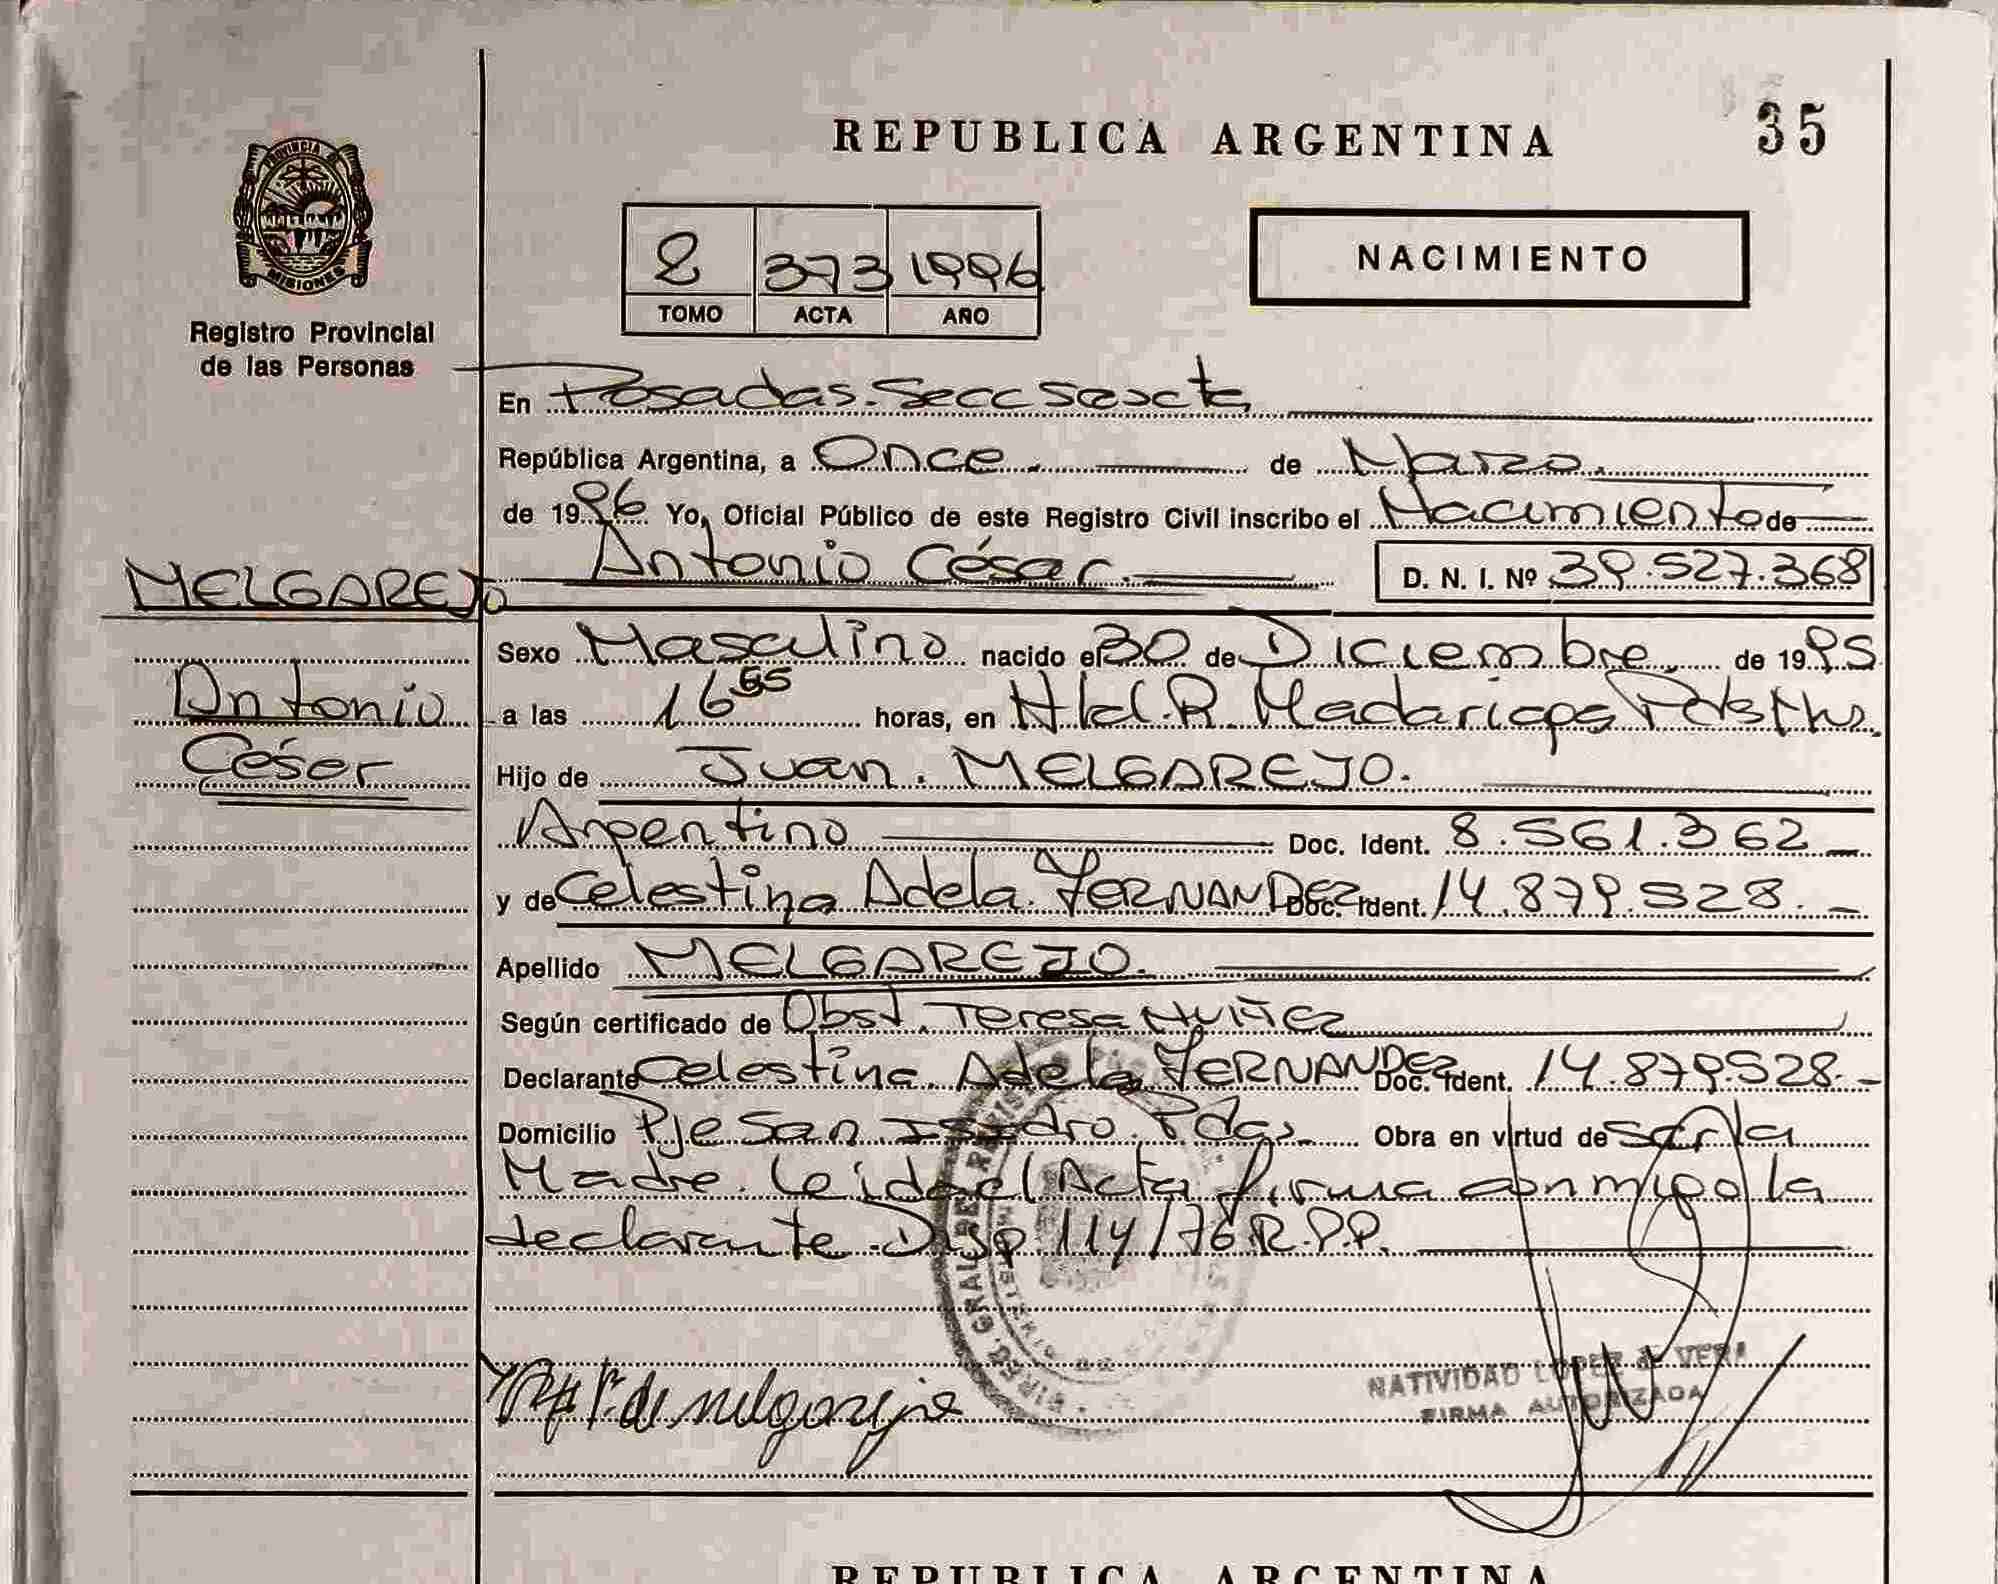 REPUBLICA ARGENTINA
35
PROVINCIA DE
MISIONES
Registro Provincial
de las Personas
2 373 1996
TOMO ACTA AÑO
NACIMIENTO
En Posadas. Secc Sexta
República Argentina, a Once de Marzo.
de 1996 Yo, Oficial Público de este Registro Civil inscribo el Nacimiento de
Antonio César. D. N. I. Nº 39.527.368
MELGAREJO
Antonio
César
Sexo Masculino nacido el 30 de Diciembre de 1995
a las 16 55 horas, en R. Madariaga
Hijo de Juan. MELGAREJO.
Argentino Doc. Ident. 8.561.362
y de Celestina Adela. FERNANDEZ Doc. Ident. 14.879.528.
Apellido MELGAREJO.
Según certificado de Obst. Teresa Nuñez
Declarante Celestina. Adela FERNANDEZ Doc. Ident. 14.879.528.
Domicilio Pje San Isidro. Pdas Obra en virtud de ser la
Madre. Leida el Acta firma conmigo la
declarante. Disp 114/76 R.P.P.
de melgarejo
NATIVIDAD LOPEZ de VERA
FIRMA AUTORIZADA
REPUBLICA ARGENTINA